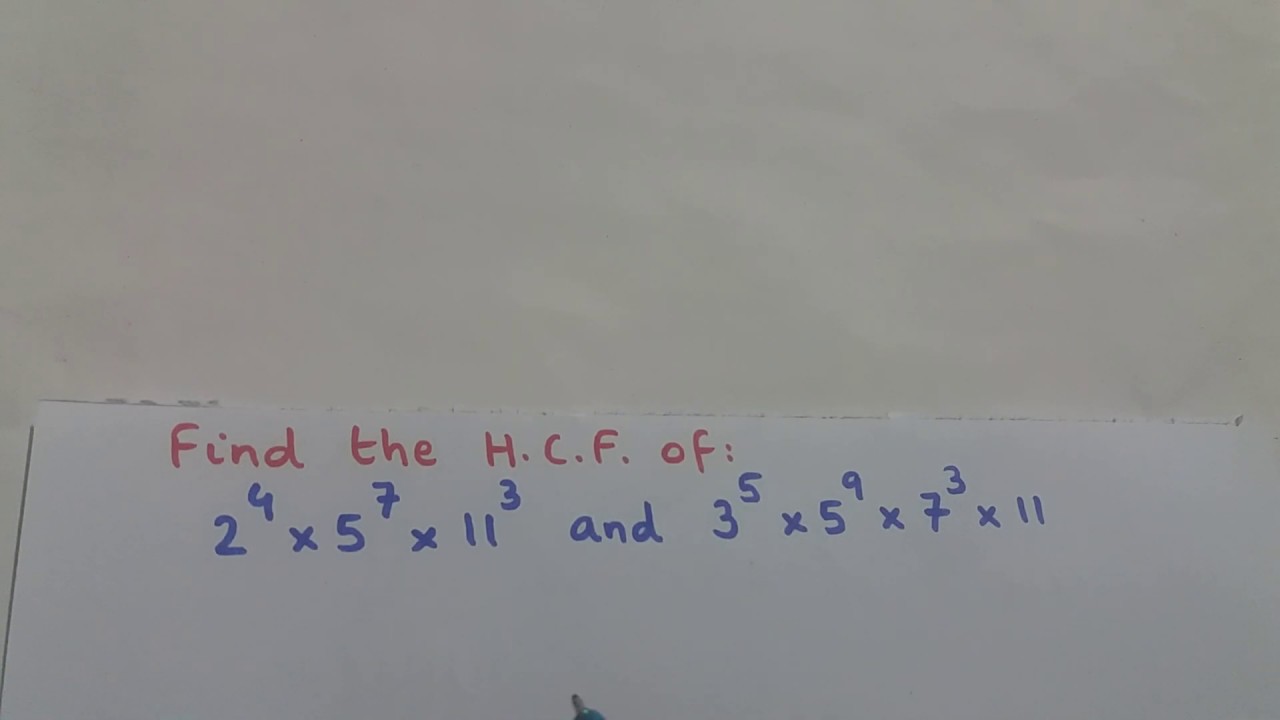 Find the H.C.F. of:
2⁴ × 5⁷ × 11³ and 3⁵ × 5⁹ × 7³ × 11